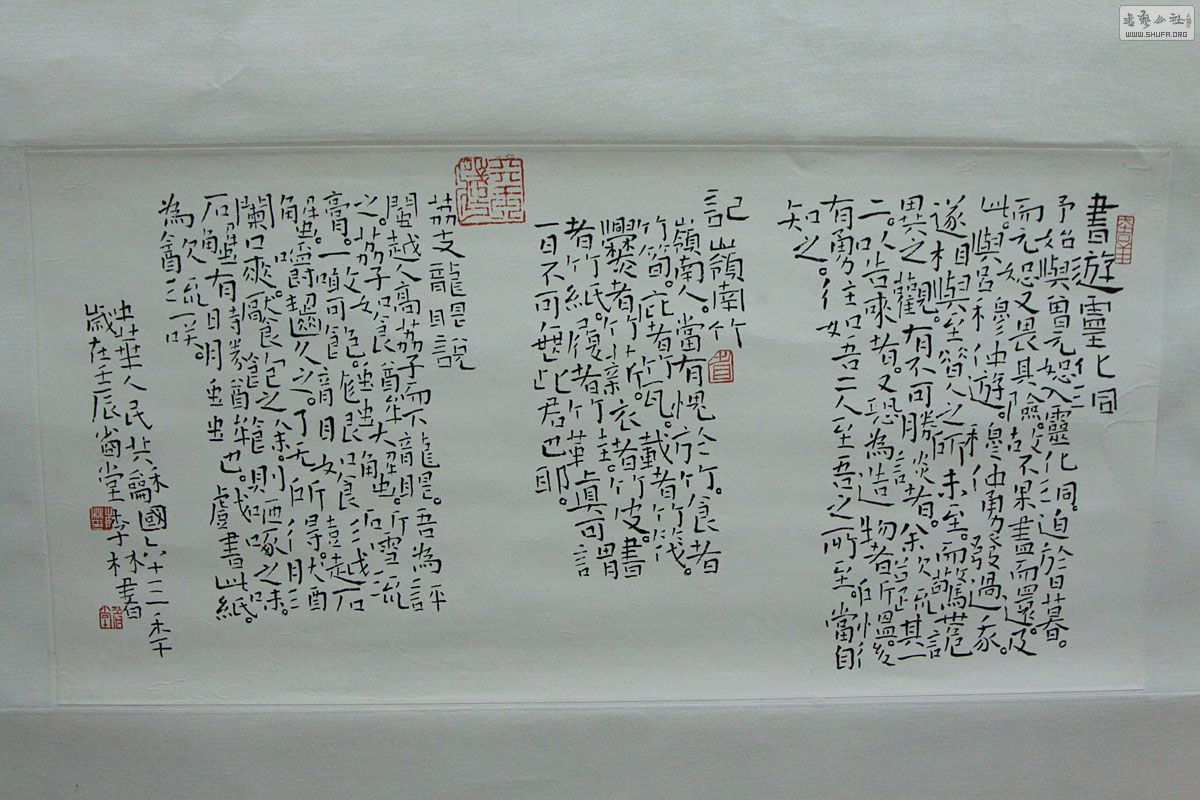 書遊靈化洞
予始與曾元恕入靈化洞。迫於日暮。
而元恕又畏其險。故不果盡而還。及
此。與呂穆仲遊。穆仲勇發過我。
遂相與至昔人之所未至。而驚世詭
異之觀。有不可勝談者。余欲疏其一
二。以告來者。又恐為造物者所慍。後
有勇往如吾二人至吾之所至。當自
知之。
記嶺南竹
嶺南人。當有愧於竹。食者
竹筍。庇者竹瓦。載者竹筏。
爨者竹薪。衣者竹皮。書
者竹紙。履者竹鞋。真可謂
一日不可無此君也耶。
荔支龍眼說
閩越人高荔子而下龍眼。吾為評
之。荔子如食蝤蛑大蟹。斫雪流
膏。一啖可飽。龍眼如食彭越石
蟹。嚼齧久之。了無所得。然酒
闌口爽。饜飽之餘。則咂啄之味。
石蟹有時勝蝤蛑也。戲書此紙。
為飲流一笑。
中華人民共和國六十二季
歲在壬辰堂李林書
書藝公社
WWW.SHUFA.ORG